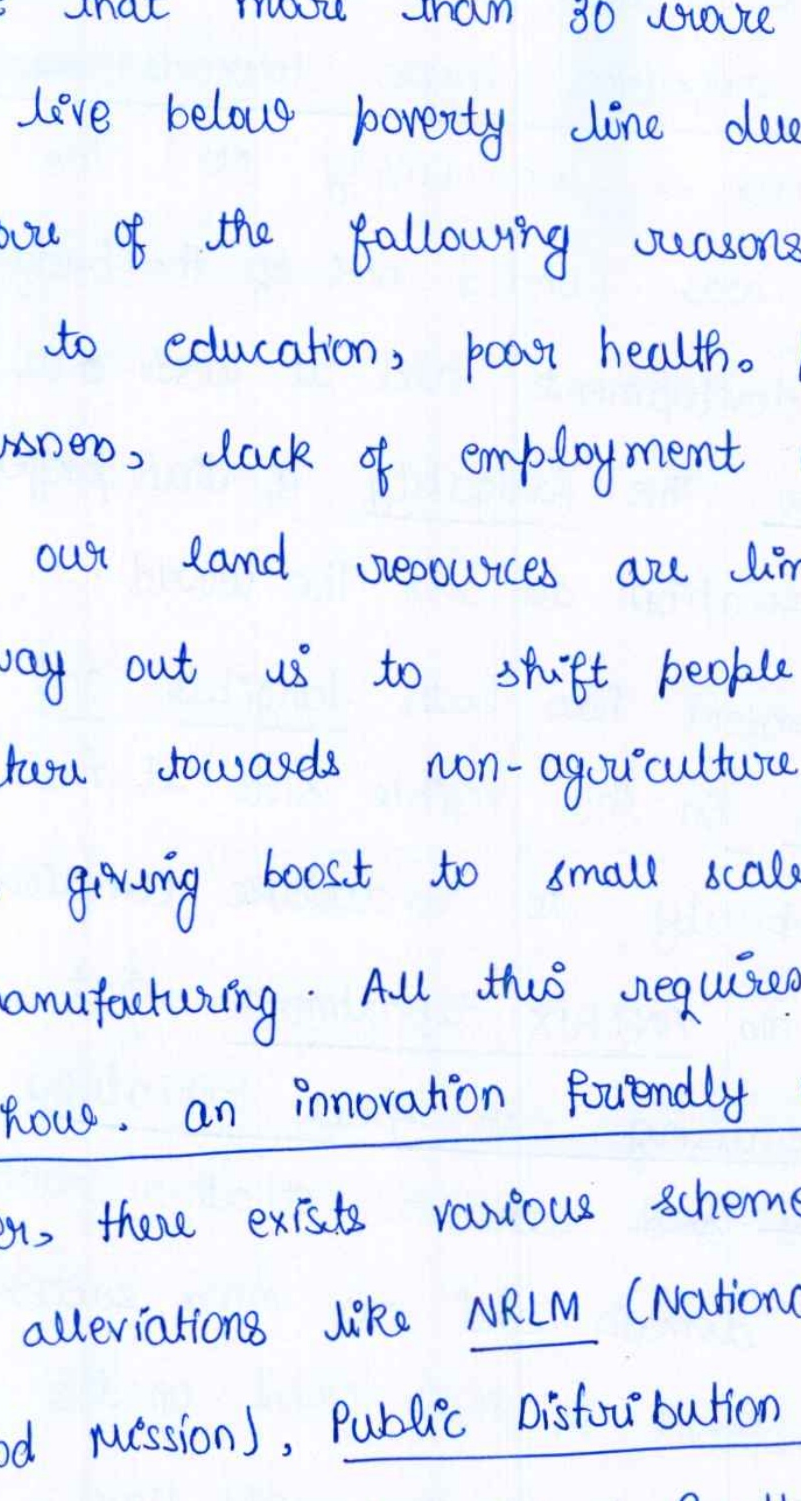 that more than 30 crore
live below poverty line due
of the following reasons
to education, poor health.
lack of employment
our land resources are
way out is to shift people
towards non-agriculture
giving boost to small scale
manufacturing. All this requires
how. an innovation friendly
there exists various scheme
alleviations like NRLM (Nationa
od Mission), Public Distribution